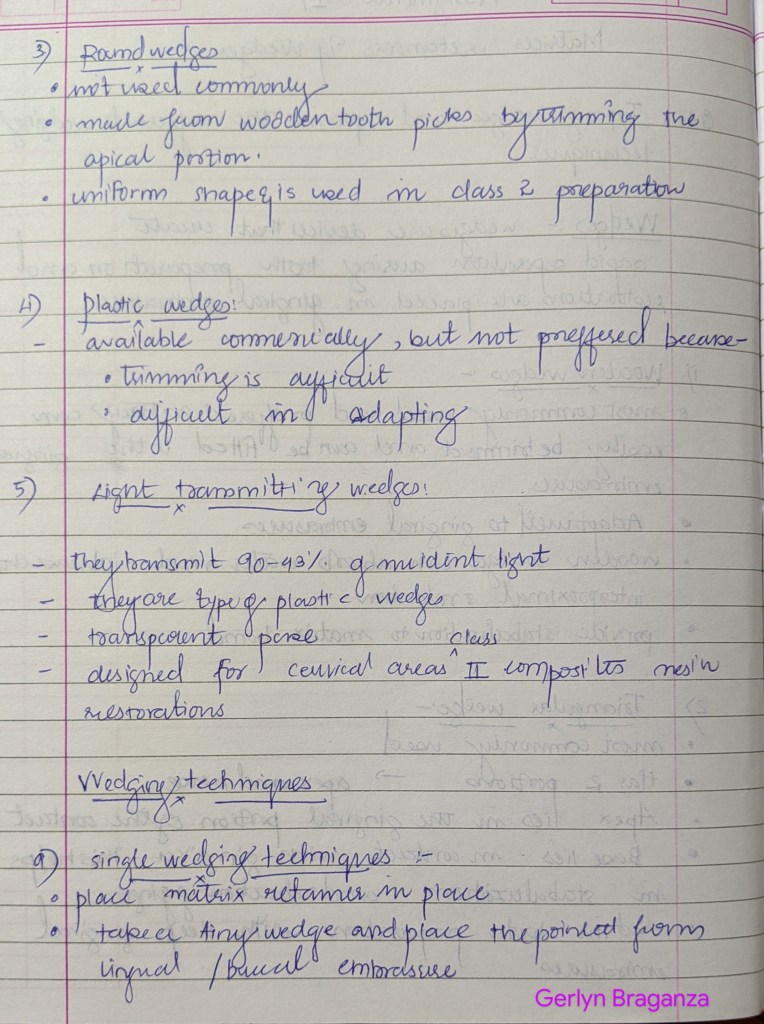 3) Round wedges
• not used commonly
• made from wooden tooth picks by trimming the
apical portion.
• uniform shape & is used in class 2 preparation
4) plastic wedges:
- available commercially, but not preffered because-
• trimming is difficult
• difficult in Adapting
5) Light transmitting wedges:
- they transmit 90-93% of incident light
- they are type of plastic wedges
- transparent
- designed for cervical areas class II composites resin
restorations
Wedging techniques
a) single wedging techniques :-
• place matrix retainer in place
• take a tiny wedge and place the pointed from
lingual / buccal embrasure
Gerlyn Braganza